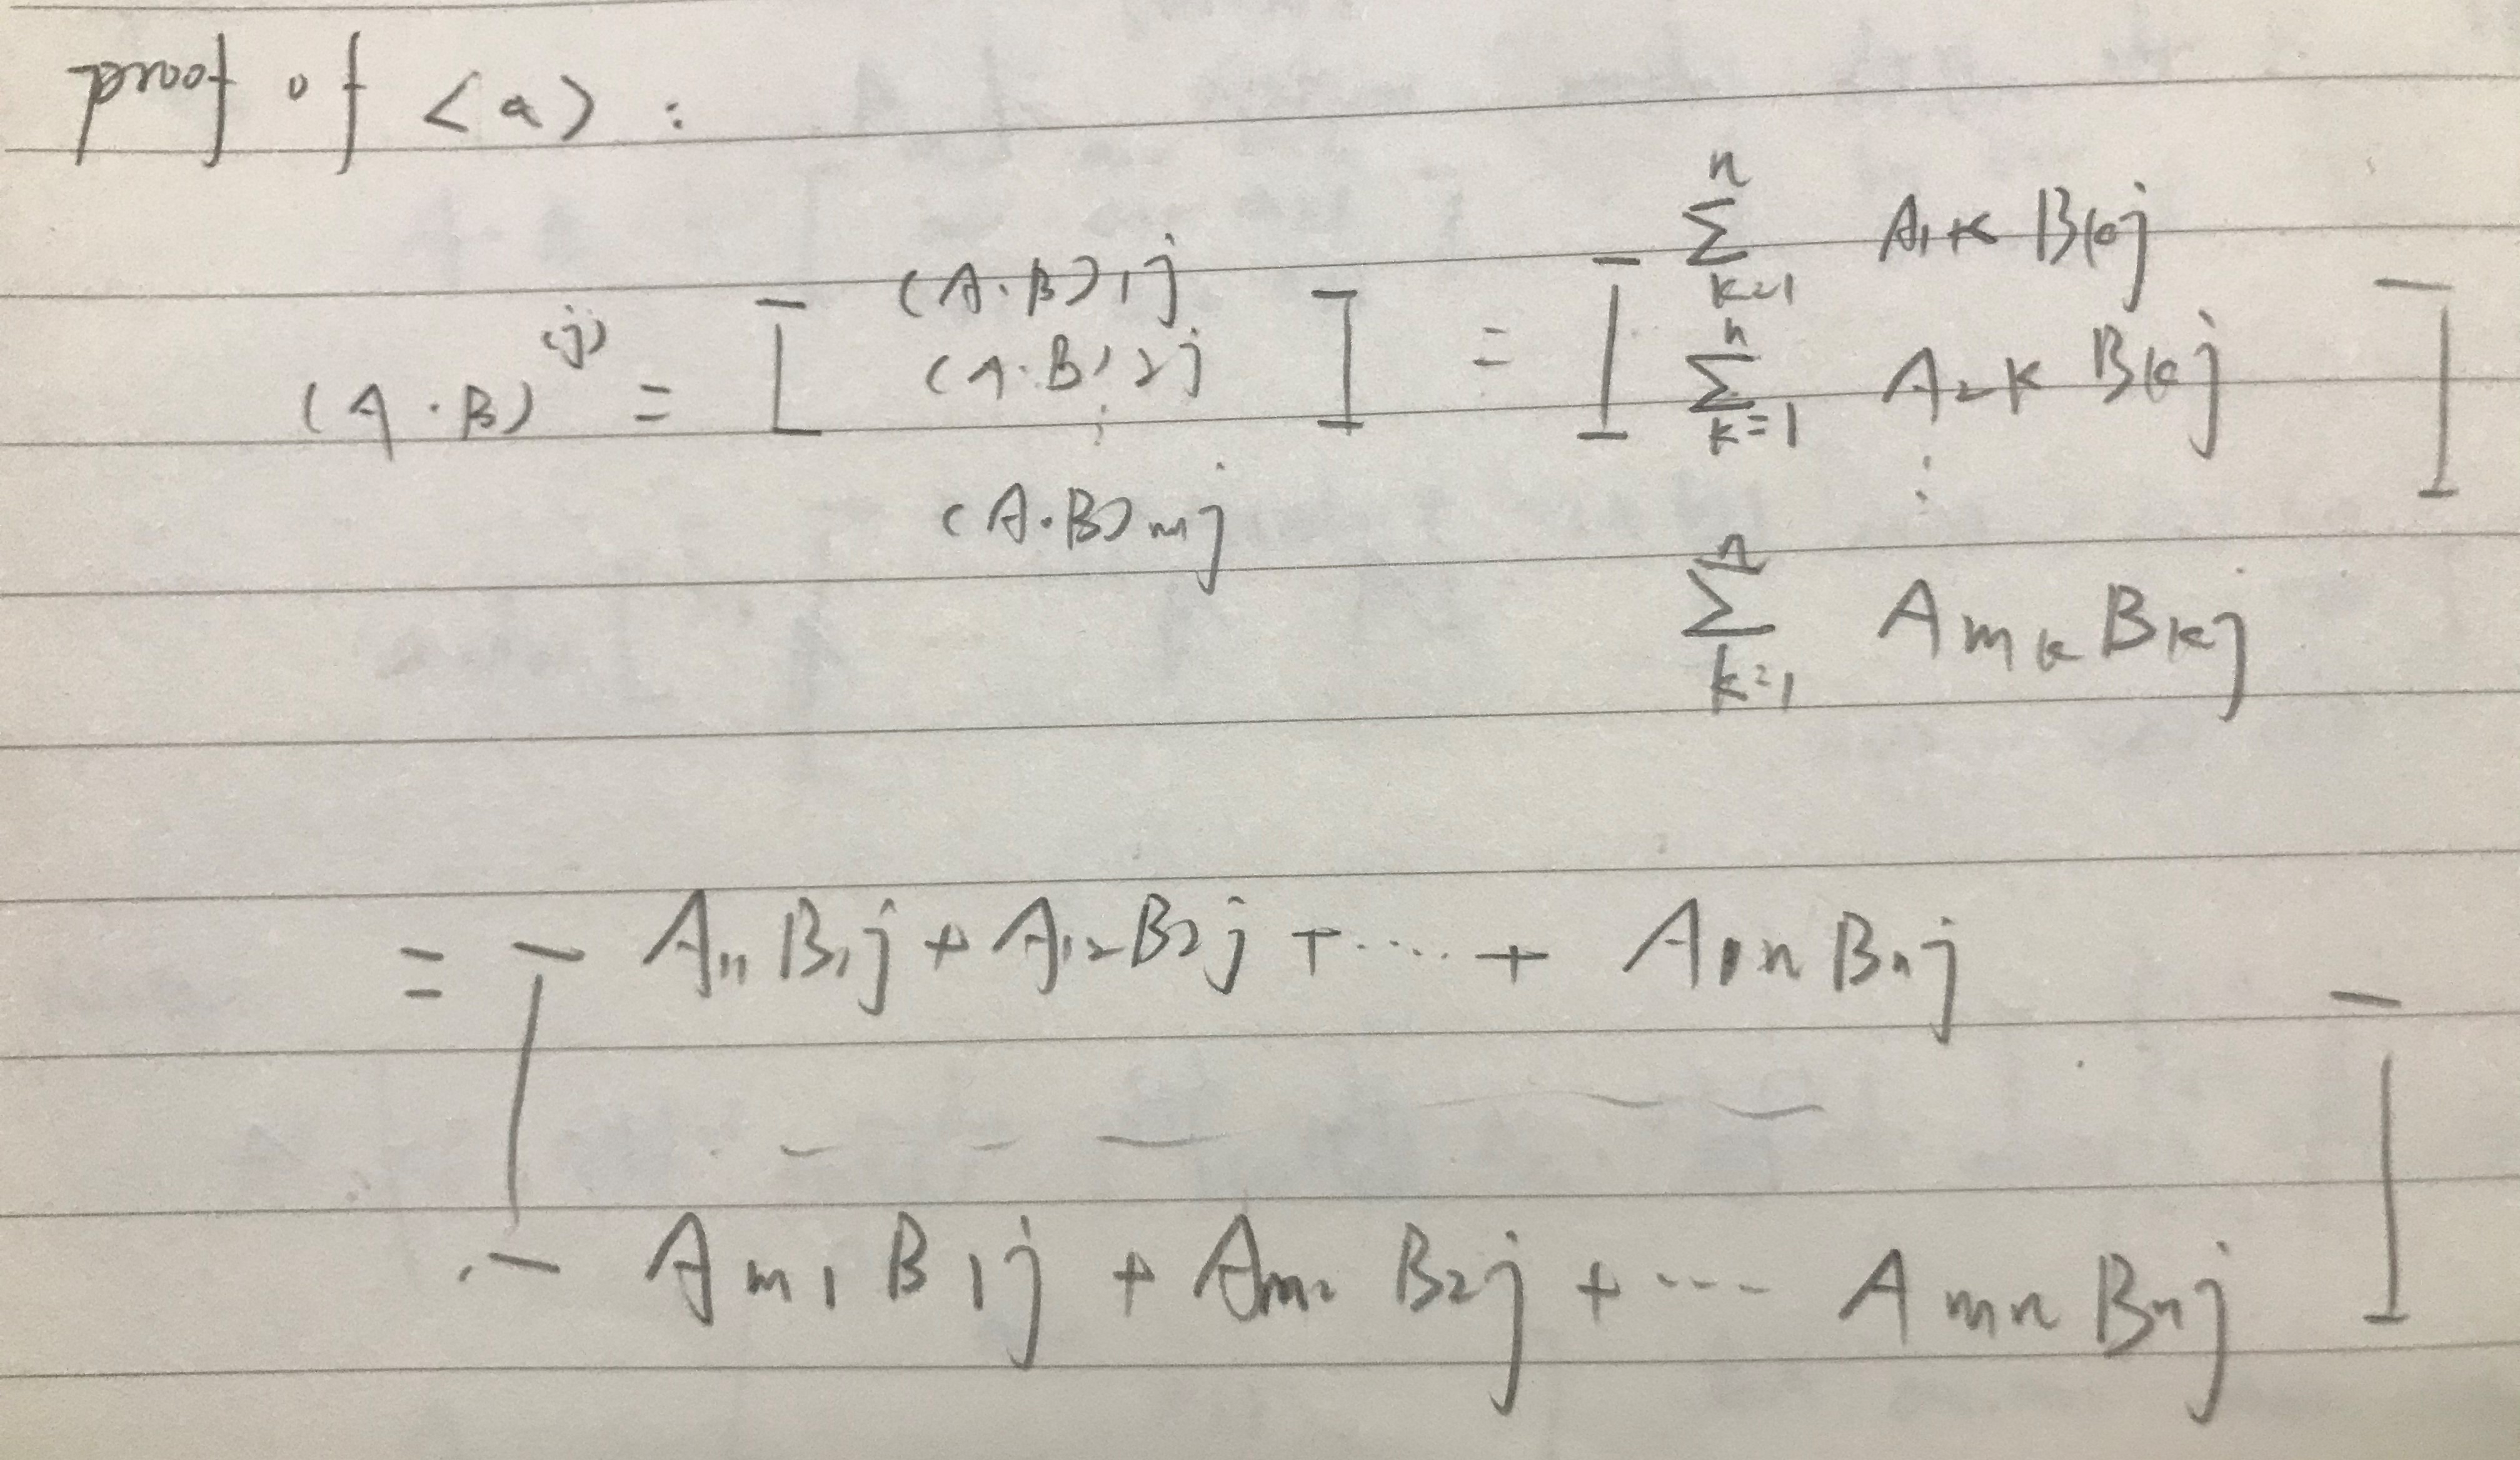 proof of <a> :
(A·B)^(j) = [ (A·B)1j (A·B)2j ⋮ (A·B)mj ] = [ ∑_{k=1}^{n} A1k Bkj ∑_{k=1}^{n} A2k Bkj ⋮ ∑_{k=1}^{n} Amk Bkj ]
= [ A11 B1j + A12 B2j + ····· + A1n Bnj
Am1 B1j + Am2 B2j + ---- Amn Bnj ]